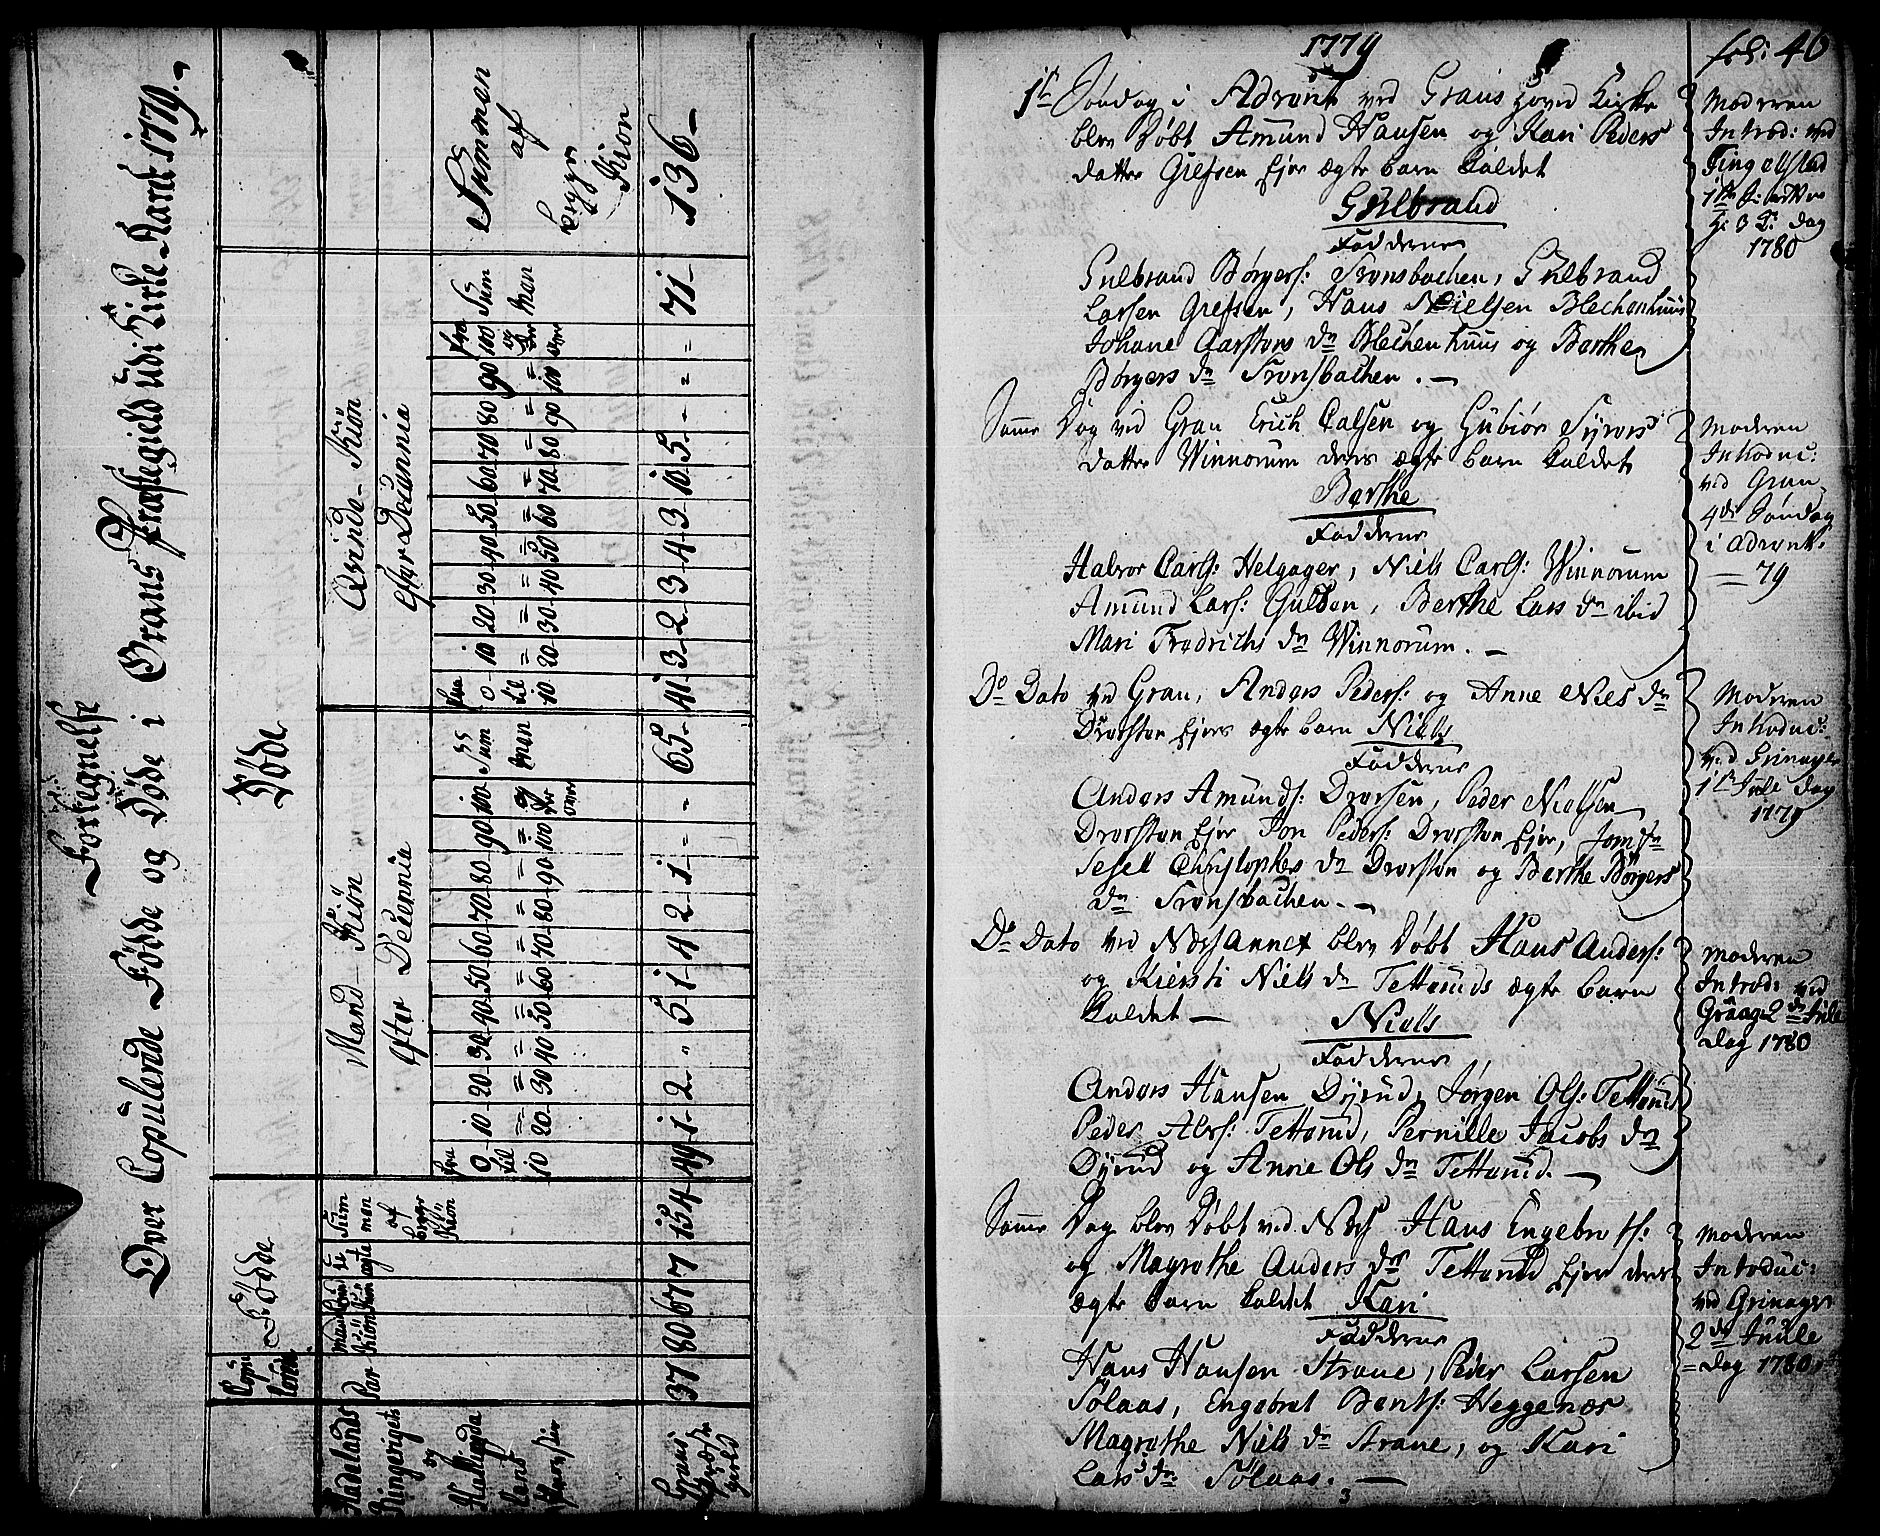 Fortegnelse
Over Copulerede Fødde og Døde i Grans Præstegield udi Kirke-Aaret 1779.
Døde
Mand-Kiön
Efter Decennia
Qvinde-Kiön
Efter Decennia
Summen
af
begge
Kiön
Fødde
Par
Hadelands
Ringeriget
og
Hallingda
lens
Grans
Præste
gield
fra 0 til 10
10 = 20
20 = 30
30 = 40
40 = 50
50 = 60
60 = 70
70 = 80
80 = 90
90 = 100
100 og der over
Sum men
fra 0 til 10
10 = 20
20 = 30
30 = 40
40 = 50
50 = 60
60 = 70
70 = 80
80 = 90
90 = 100
fra 100 og der over
Sum men
37 80 67 7 154 49 1 2 " 5 1 4 2 1 = " 65 41 3 2 3 4 3 10 5 - - = 71 136
1779
fol: 40
1ste Søndag i Advent ved Grans Hoved Kirke
blev Døbt Amund Hansen og Kari Peders
datter Grefsen Ejer ægte barn kaldet
Gulbrand
Fadderne
Gulbrand Børgers: Tronsbachen, Gulbrand
Larsen Grefsen, Hans Nielsen Blechenhuus
Johane Carstens dr Blechenhuus og Berthe
Børgers dr Tronsbachen.
Moderen
Introd: ved
Tingelstad
1780
Samme Dag ved Gran Erich Calsen og Gubiør Syvers
datter Winnorum deres ægte barn kaldet
Berthe
Fadderne
Halvor Carls: Helgager, Niels Carls: Winnorum
Amund Lars: Gulden, Berthe Lars dr ibid
Mari Fredrichs dr Winnorum.
Moderen
Introduc:
ved Gran
4de Søndag
i Advent
79
Do Dato ved Gran, Anders Peders: og Anne Niels dr
Dvorsten Ejers ægte barn Niels
Fadderne
Anders Amunds: Peder Nielsen
Dvorsten Ejer Jon Peders: Dvorsten Ejer, Jomfr
Christophers dr Dvorsten og Berthe Børgers
dr Tronsbachen.
Moderen
Introduc:
ved Grinager
1ste Jule dag
1779
Do Dato ved Næs Annex blev Døbt Hans Anders:
og Kiersti Niels dr Tetteruds ægte barn
kaldet
Niels
Fadderne
Anders Hansen Dyrud, Jørgen Ols: Tetterud
Peder Alers: Tetterud, Pernille Jacobs dr
Dyrud og Anne Ols dr Tetterud.
Moderen
Introd: ved
2den Jule
dag 1780
Samme Dag blev Døbt ved Næs Hans Engebrets:
og Magrethe Anders dr Tetterud Ejer deres
ægte barn kaldet Kari
Fadderne
Hans Hansen Strane, Peder Larsen
Sølaas, Engebret Bents: Heggenær
Magrethe Niels dr Strane, og Kari
Lars dr: Sølaas.
Moderen
Introduc:
ved Grinager
2de Juule
dag 1780
3